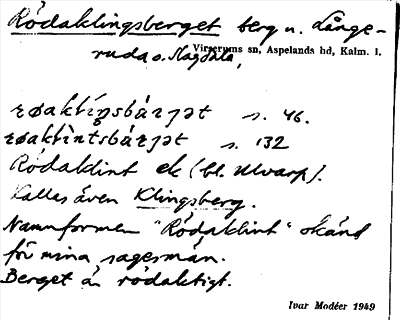 Rödaklingsberget berg n. Långe-
ruda o. Slagdala,
Virserums sn, Aspelands hd, Kalm. l.
s. 46.
s. 132
Rödaklint ek (bl. Ulvarp).
Kallas även Klingsberg.
Namnformen "Rödaklint" okänd
för mina sagesmän.
Berget är rödaktigt.
Ivar Modéer 1949